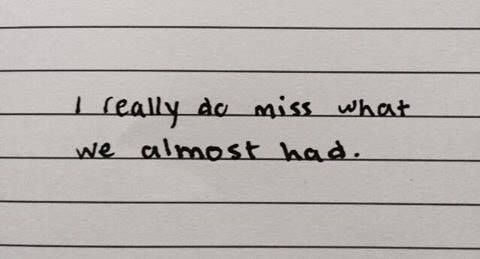 I really do miss what
we almost had.